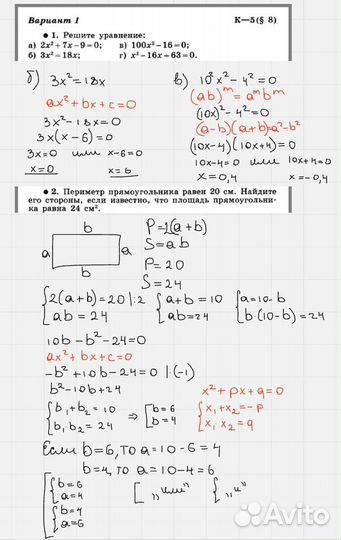 Вариант 1 К—5(§ 8)
• 1. Решите уравнение:
а) 2x² + 7x − 9 = 0; в) 100x² − 16 = 0;
б) 3x² = 18x; г) x² − 16x + 63 = 0.
б) 3x² = 18x
ax² + bx + c = 0
3x² − 18x = 0
3x(x − 6) = 0
3x = 0 или x − 6 = 0
x = 0 x = 6
в) 10²x² − 4² = 0
(ab)ᵐ = aᵐbᵐ
(10x)² − 4² = 0
(a−b)(a+b) = a² − b²
(10x − 4)(10x + 4) = 0
10x − 4 = 0 или 10x + 4 = 0
x = 0,4 x = −0,4
• 2. Периметр прямоугольника равен 20 см. Найдите
его стороны, если известно, что площадь прямоугольни-
ка равна 24 см².
b
a a
b
P = 2(a + b)
S = ab
P = 20
S = 24
{2(a + b) = 20 |:2 {a + b = 10 {a = 10 − b
{ab = 24 {ab = 24 {b·(10 − b) = 24
10b − b² − 24 = 0
ax² + bx + c = 0
−b² + 10b − 24 = 0 |·(−1)
b² − 10b + 24
{b₁ + b₂ = 10 ⇒ [b = 6
{b₁·b₂ = 24 [b = 4
x² + px + q = 0
{x₁ + x₂ = −p
{x₁ x₂ = q
Если b = 6, то a = 10 − 6 = 4
b = 4, то a = 10 − 4 = 6
[{b = 6
{a = 4
{b = 4
{a = 6
[ „или“ { „и“
Avito